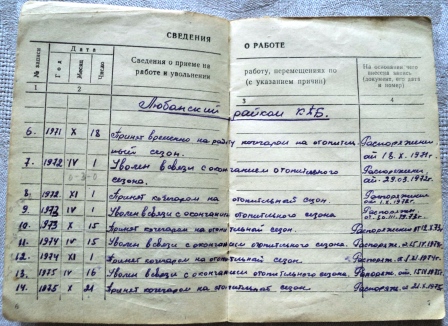 СВЕДЕНИЯ О РАБОТЕ
№ записи
Дата
Год
Месяц
Число
Сведения о приеме на работу, перемещениях по
работе и увольнении (с указанием причин)
На основании чего
внесена запись
(документ, его дата
и номер)
1 2 3 4
Любанский райком КПБ.
6. 1971 X 18 Принят временно на работу кочегаром на отопитель- Распоряжение
ный сезон. от 18.X.1971г.
7. 1972 IV 1 Уволен в связи с окончанием отопительного Распоряжение
сезона. от 29.03.1972г.
8. 1972 XI 1 Принят кочегаром на отопительный сезон. Распоряжение
9. 1973 IV 1 Уволен в связи с окончанием отопительного сезона Распоряжен.
10. 1973 X 15 Принят кочегаром на отопительный сезон. Распоряжение
11. 1974 IV 15 Уволен в связи с окончанием отопительного сезона. Распоряж. от 15.IV.1974г.
12. 1974 XI 1 Принят кочегаром на отопительный сезон. Распоряж. 1974г.
13. 1975 IV 16 Уволен в связи с окончанием отопительного сезона. Распоряж. от 15.IV.1975г.
14. 1975 X 21 Принят кочегаром на отопительный сезон. Распоряж. от 21.X.1975